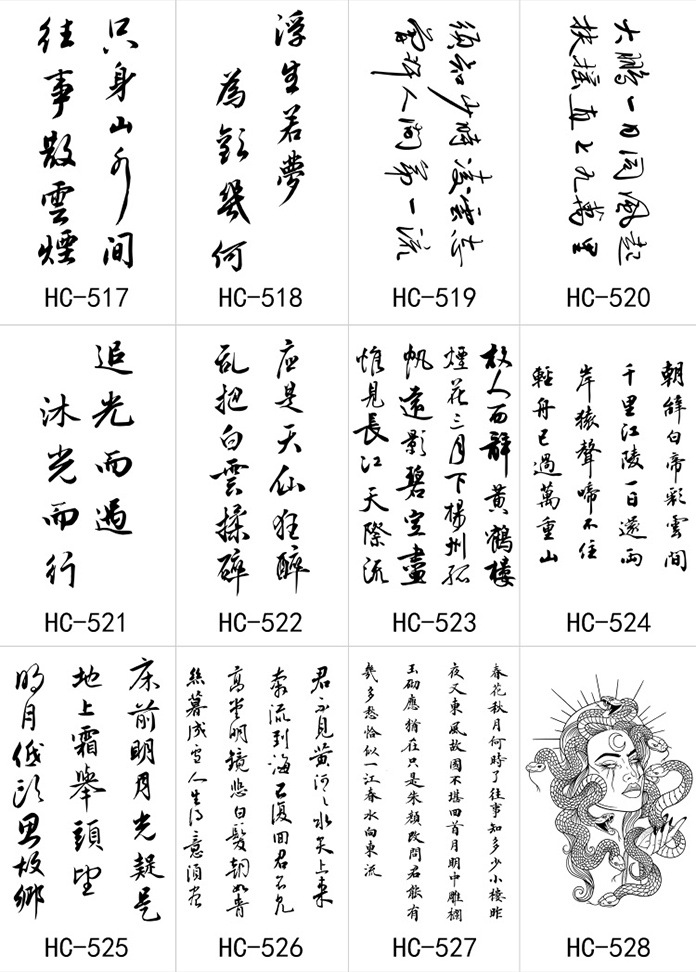 只身山外间
往事散雲煙
HC-517
浮生若夢
為歡幾何
HC-518
須知少時凌雲志
曾許人間第一流
HC-519
大鵬一日同風起
扶摇直上九萬里
HC-520
追光而遇
沐光而行
HC-521
应是天仙狂醉
乱把白雲揉碎
HC-522
故人西辭黃鶴樓
煙花三月下楊州孤
帆遠影碧空盡
惟見長江天際流
HC-523
朝辞白帝彩雲間
千里江陵一日還兩
岸猿聲啼不住
輕舟已過萬重山
HC-524
床前明月光疑是
地上霜舉頭望
明月低头思故鄉
HC-525
君不見黄河之水天上来
奔流到海不復回君不見
高堂明鏡悲白髮朝如青
絲暮成雪人生得意須尽
HC-526
春花秋月何時了往事知多少小樓昨
夜又東風故國不堪回首月明中雕欄
玉砌應猶在只是朱顏改問君能有
幾多愁恰似一江春水向東流
HC-527
HC-528